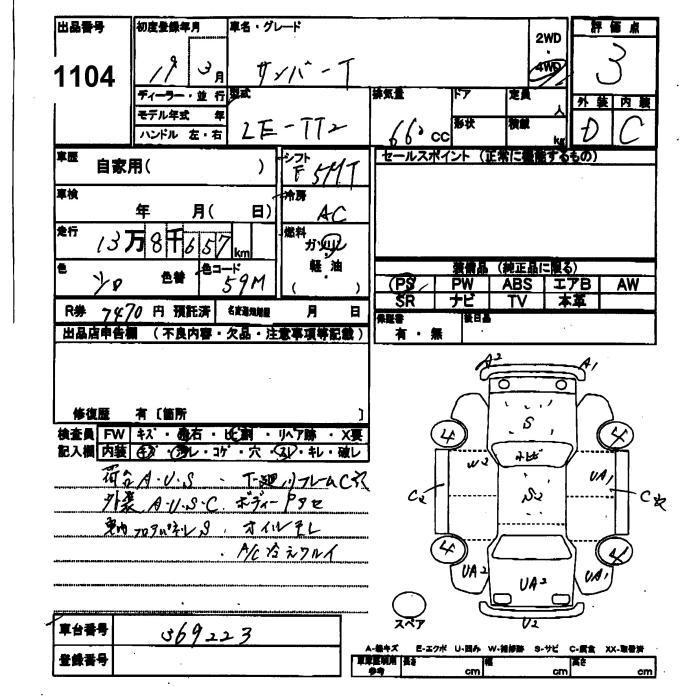 出品番号 初度登録年月 車名・グレード 評価点
1104 19 3月 サンバーT 2WD 4WD 3
ディーラー・並行 型式 排気量 ドア 定員 人 外装 内装
モデル年式 年 LE-TT2 660 cc 形状 積載 kg D C
ハンドル 左・右
車歴 自家用( ) シフト F5MT セールスポイント(正常に機能するもの)
車検 年 月( 日) 冷房 AC
走行 13万8千657km 燃料 ガソリン 軽油 ( )
色 シロ 色替 色コード 59M 装備品(純正品に限る)
PS PW ABS エアB AW
SR ナビ TV 本革
R券 7470円 預託済 名変通知期限 月 日 保証書 有・無 後日品
出品店申告欄(不良内容・欠品・注意事項等記載)
修復歴 有〔箇所 〕
検査員 FW キズ・飛石・ヒビ割・リペア跡・X要
記入欄 内装 キズ・汚レ・コゲ・穴・スレ・キレ・破レ
荷台A・U・S・下廻リフレームC穴
外装A・U・S・C ボディーPタセ
車内フロアパネルS・オイルモレ
・A/C冷エワルイ
A2 A1
S
4 4
W2 トビ UA1
C2 S2 C穴
4 4
UA2 UA2 UA1
U2
スペア
車台番号 369223
登録番号
A-線キズ E-エクボ U-凹み W-補修跡 S-サビ C-腐食 XX-取替済
車庫証明用参考 長さ cm 幅 cm 高さ cm